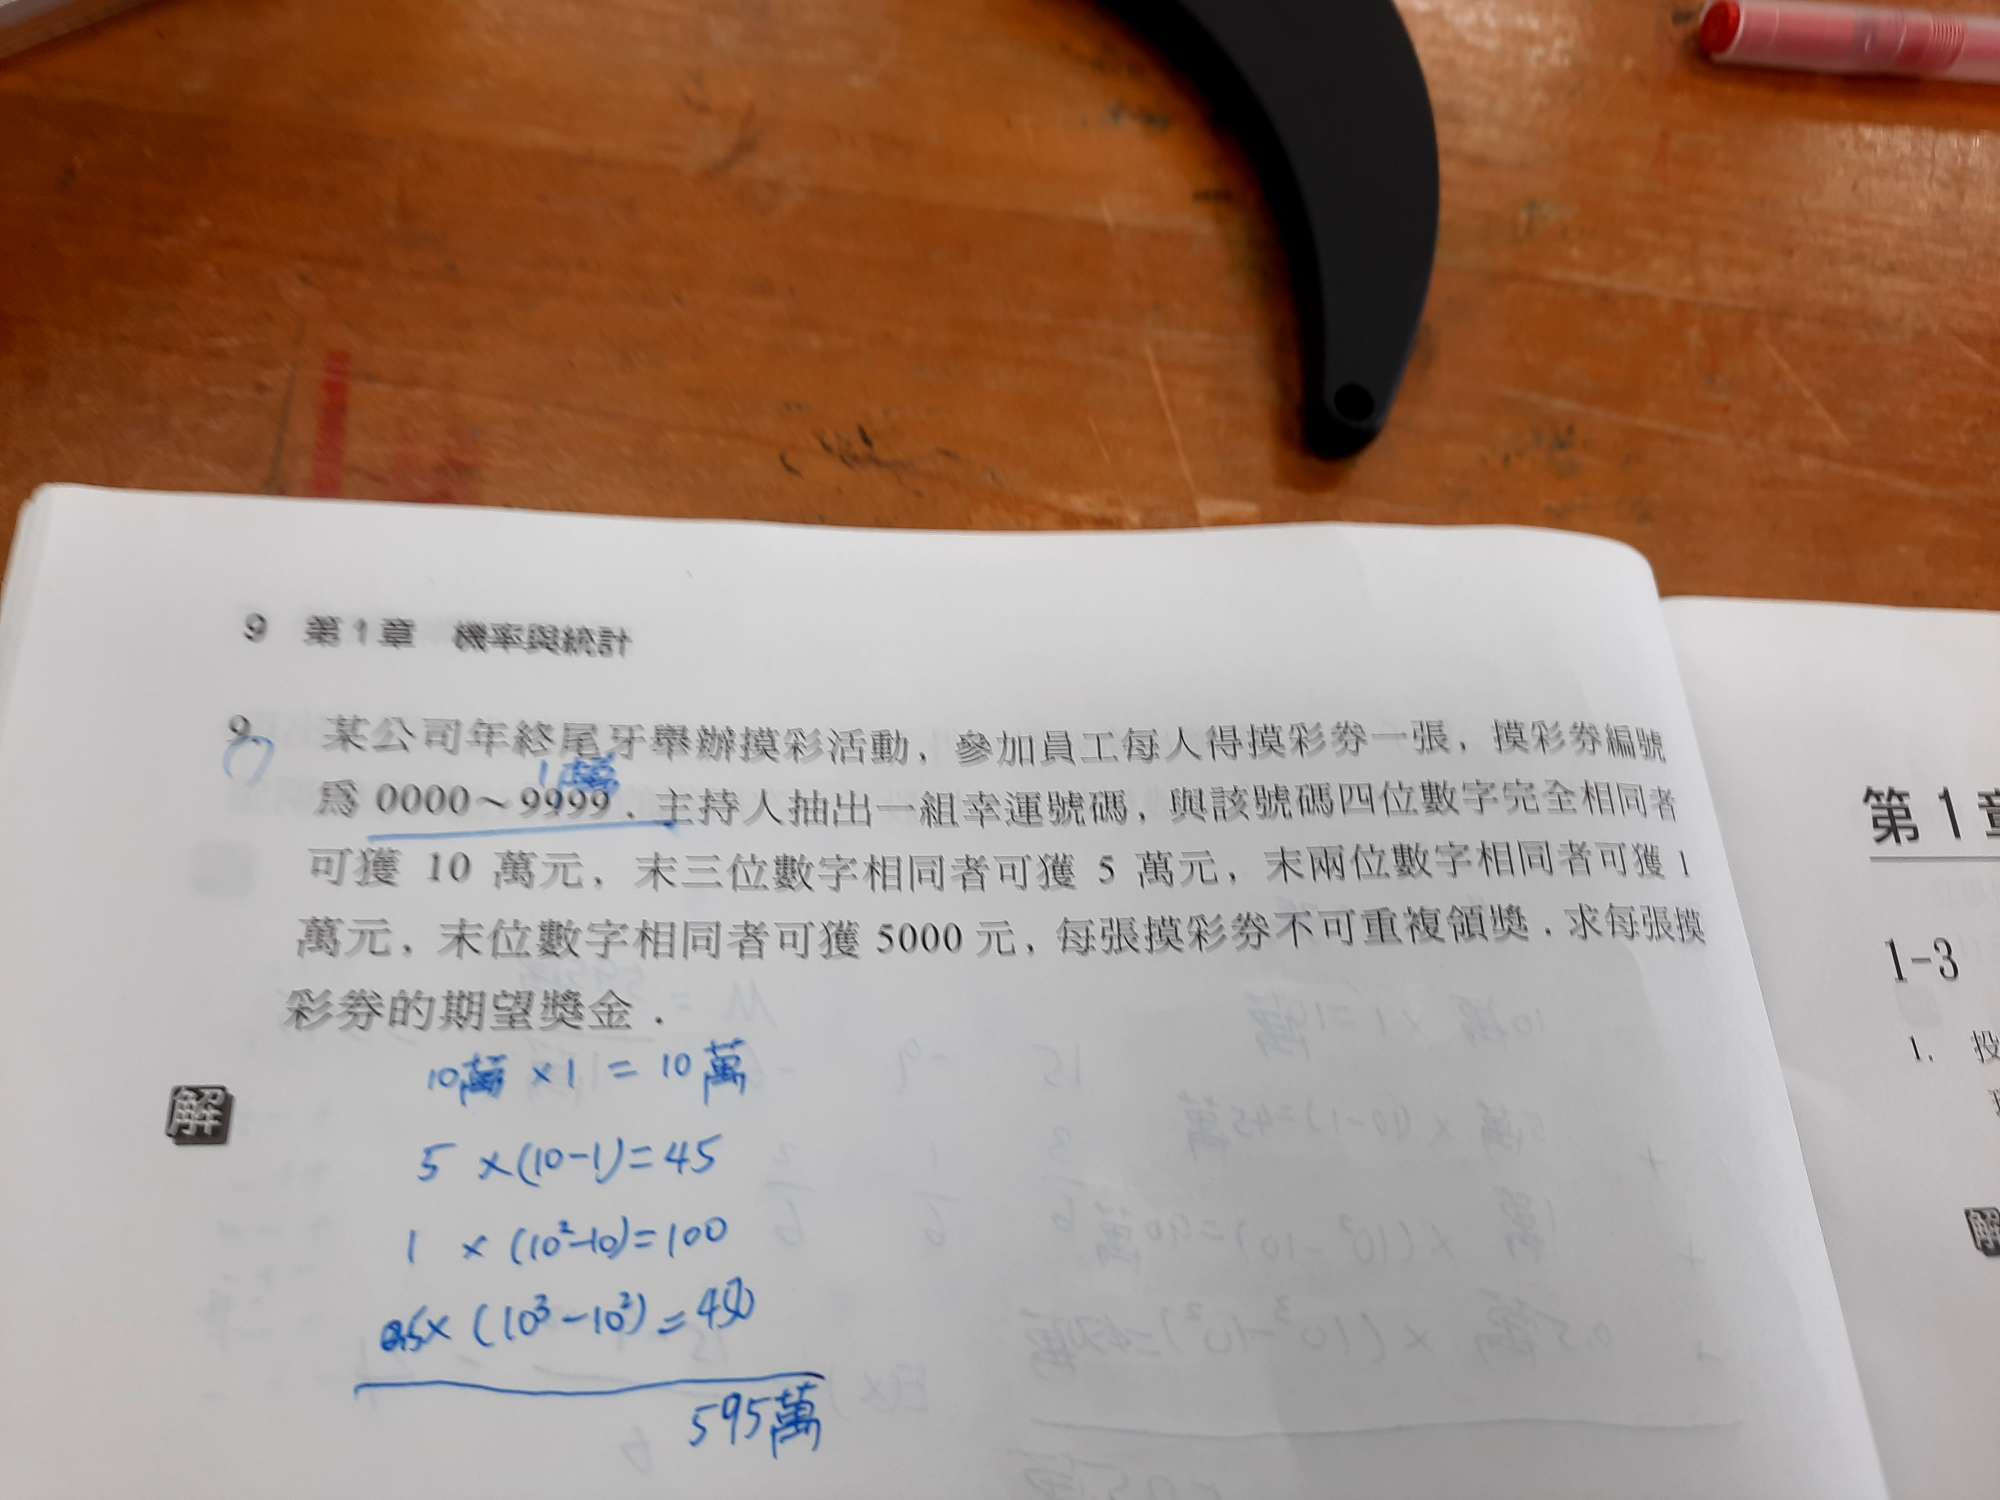 9 第1章 機率與統計
9. 某公司年終尾牙舉辦摸彩活動，參加員工每人得摸彩券一張，摸彩券編號
1萬
為 0000～9999．主持人抽出一組幸運號碼，與該號碼四位數字完全相同者
可獲 10 萬元，末三位數字相同者可獲 5 萬元，末兩位數字相同者可獲 1
萬元，末位數字相同者可獲 5000 元，每張摸彩券不可重複領獎．求每張摸
彩券的期望獎金．
解
10萬 ×1 = 10萬
5 ×(10-1)=45
1 ×(10²-10)=100
0.5×(10³-10²)=450
595萬
第1章
1-3
1. 投
解